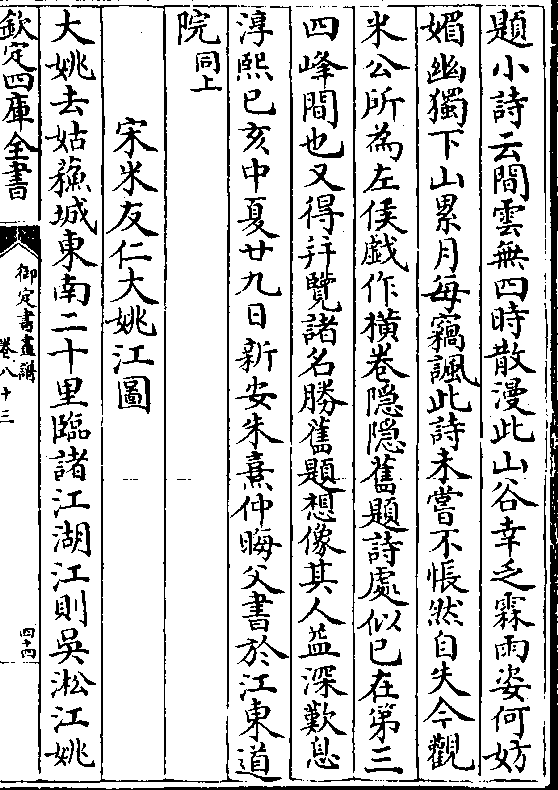 題小詩云閒雲無四時散漫此山谷幸乏霖雨姿何妨
媚幽獨下山累月每竊諷此詩未嘗不悵然自失今觀
米公所為左侯戯作横巻隠隠舊題詩處似已在第三
四峰間也又得并覽諸名勝舊題想像其人益深歎息
淳熙己亥中夏廿九日新安朱熹仲晦父書於江東道
院同上
宋米友仁大姚江圖
大姚去姑蘓城東南二十里臨諸江湖江則吳淞江姚
欽定四庫全書
御定書畫譜
卷八十三
四十四